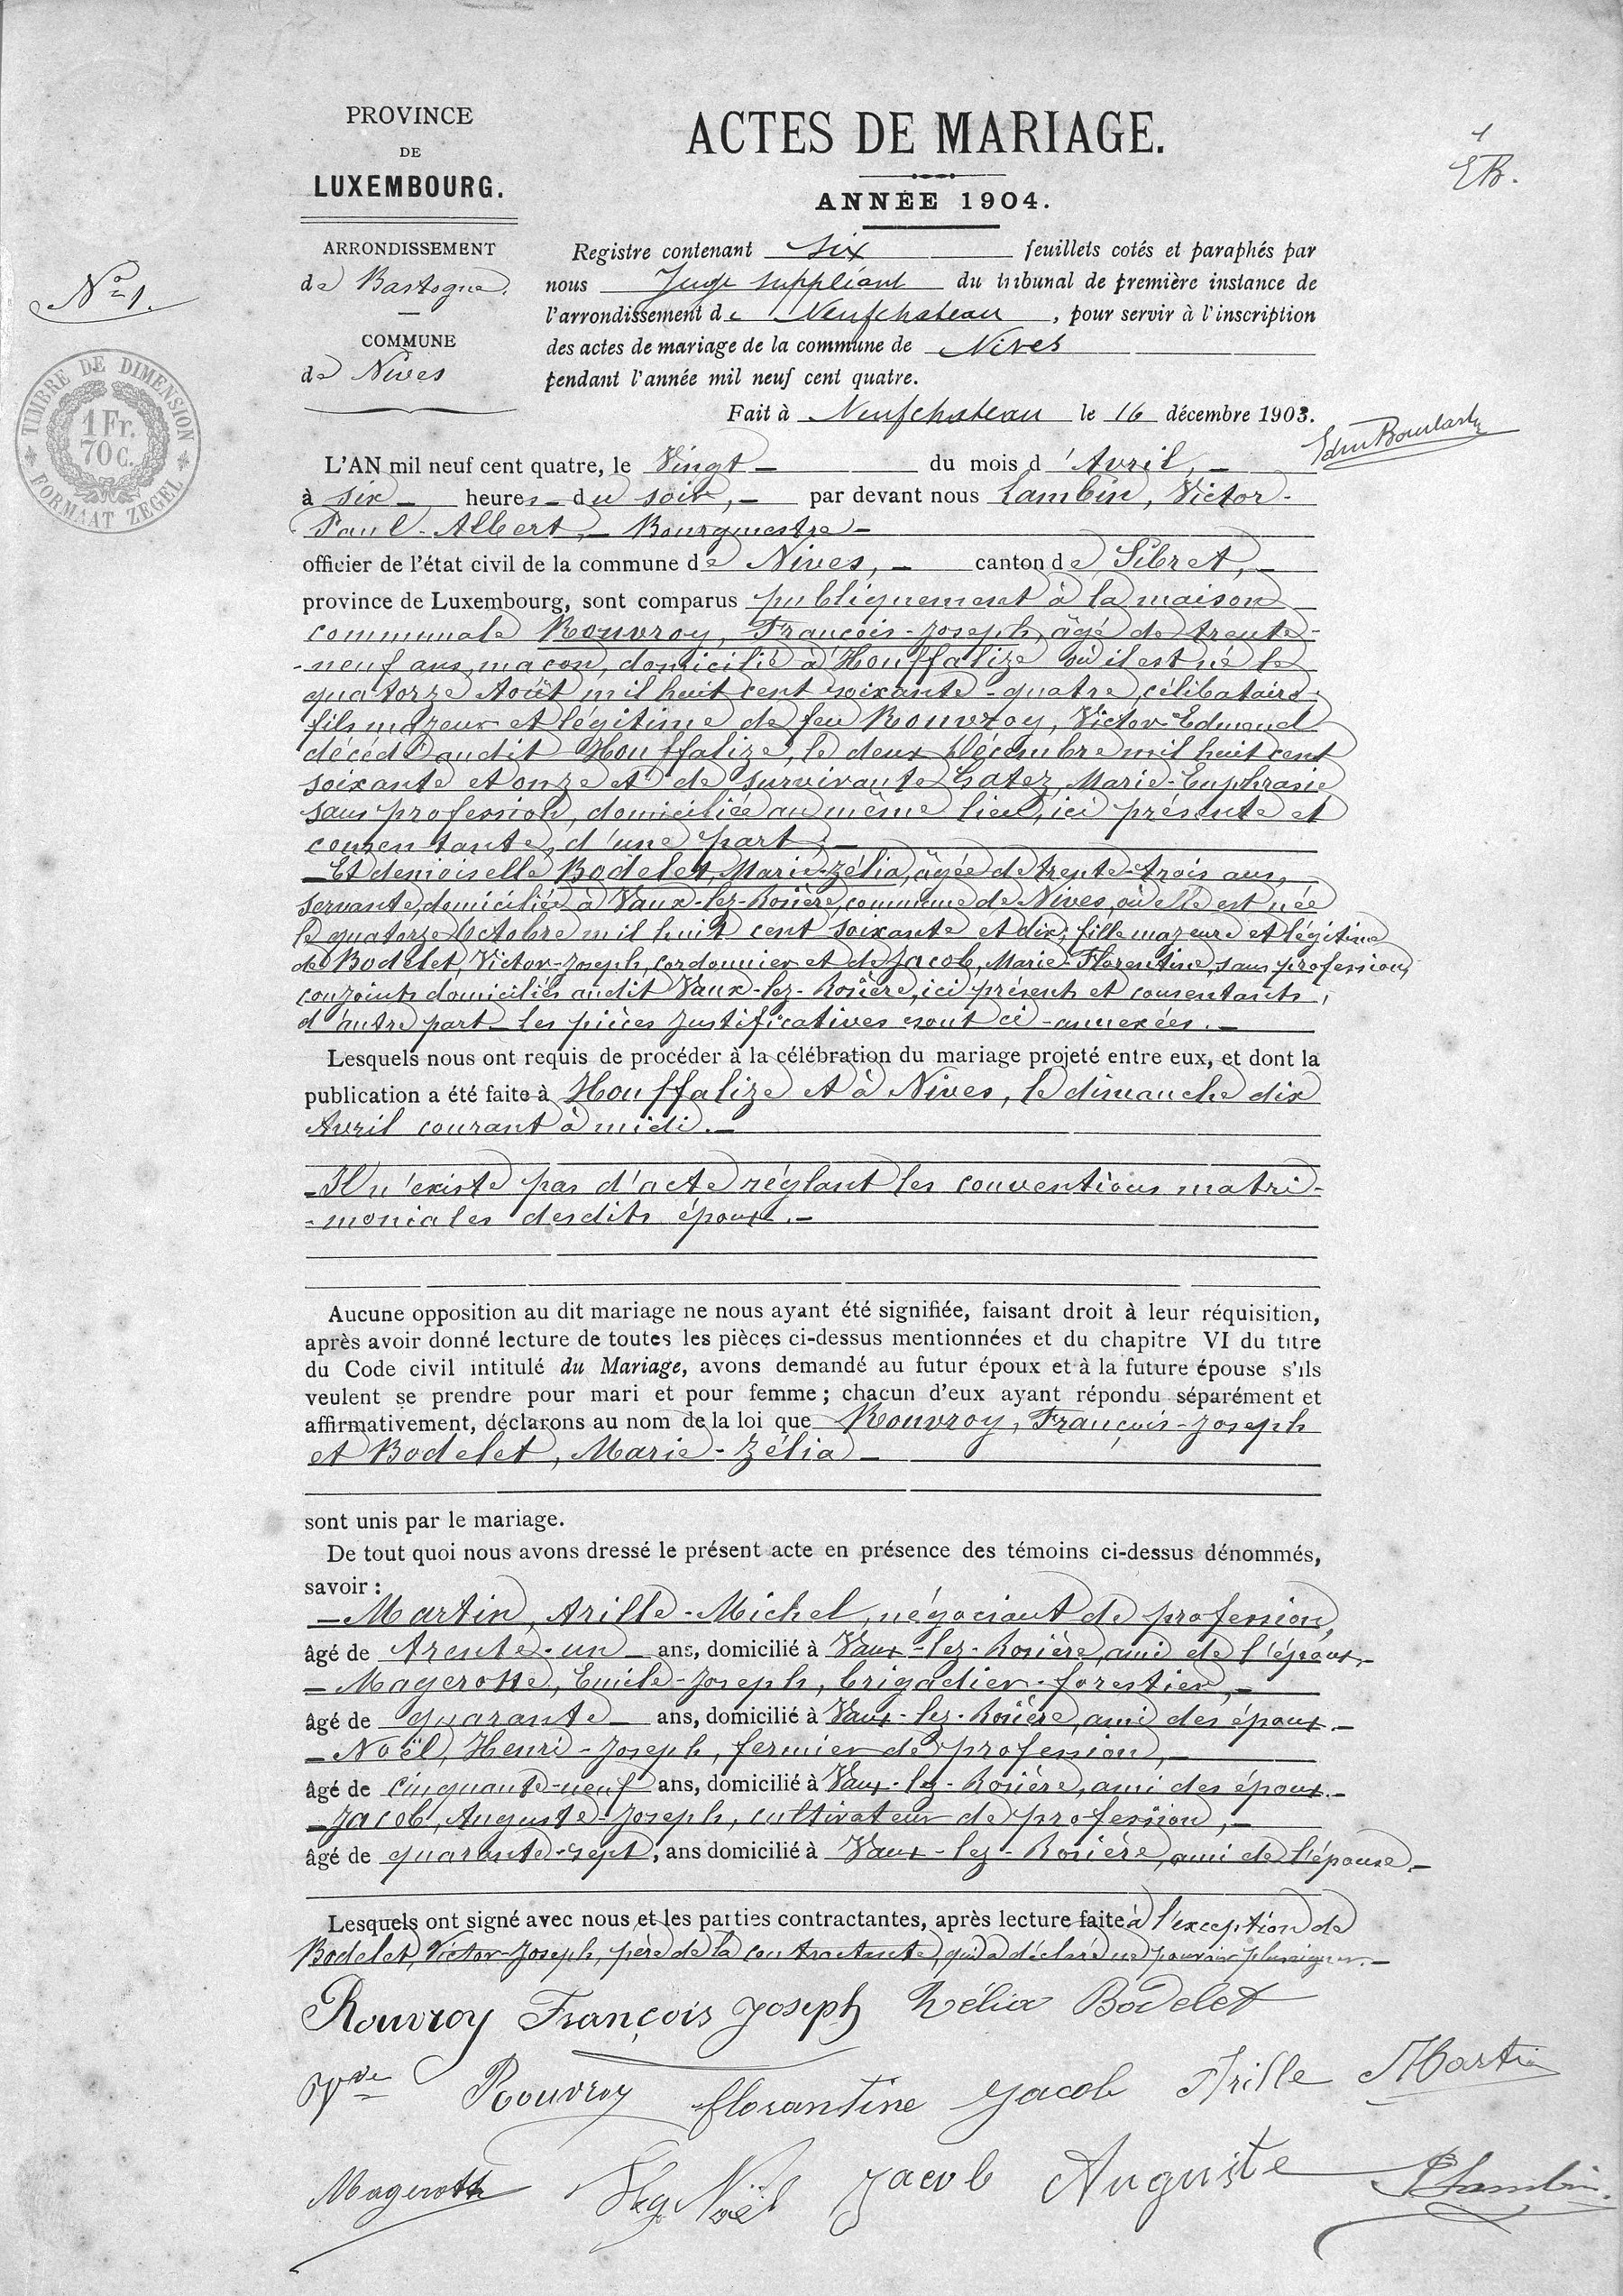 PROVINCE
DE
LUXEMBOURG.
ARRONDISSEMENT
de Bastogne.
COMMUNE
de Nives
ACTES DE MARIAGE.
ANNÉE 1904.
1
EB.
Nº 1.
TIMBRE DE DIMENSION
1 Fr.
70 C.
FORMAAT ZEGEL
Registre contenant six feuillets cotés et paraphés par
nous Juge suppléant du tribunal de première instance de
l'arrondissement de Neufchateau, pour servir à l'inscription
des actes de mariage de la commune de Nives
pendant l'année mil neuf cent quatre.
Fait à Neufchateau le 16 décembre 1903.
L'AN mil neuf cent quatre, le Vingt – du mois d'Avril, –
à six – heures – du soir, – par devant nous Lambin, Victor-
Paul-Albert, – Bourgmestre –
officier de l'état civil de la commune de Nives, – canton de Sibret, –
province de Luxembourg, sont comparus publiquement à la maison
communale Rouvroy, François-Joseph, âgé de trente-
-neuf ans, maçon, domicilié à Houffalize où il est né le
quatorze Août mil huit cent soixante-quatre, célibataire,
fils majeur et légitime de feu Rouvroy, Victor-Edmond
décédé audit Houffalize, le deux Décembre mil huit cent
soixante et onze et de survivante Gatez, Marie-Euphrasie
sans profession, domiciliée au même lieu, ici présente et
consentante, d'une part; –
– Et demoiselle Bodelet, Marie-Zélia, âgée de trente-trois ans,
servante, domiciliée à Vaux-lez-Rosière, commune de Nives, où elle est née
le quatorze Octobre mil huit cent soixante et dix, fille majeure et légitime
de Bodelet, Victor-Joseph, cordonnier et de Jacob, Marie-Florentine, sans profession,
conjoints domiciliés audit Vaux-lez-Rosière, ici présents et consentants,
d'autre part – les pièces justificatives sont ci-annexées. –
Lesquels nous ont requis de procéder à la célébration du mariage projeté entre eux, et dont la
publication a été faite à Houffalize et à Nives, le dimanche dix
Avril courant à midi. –
– Il n'existe pas d'acte réglant les conventions matri-
-moniales desdits époux. –
Aucune opposition au dit mariage ne nous ayant été signifiée, faisant droit à leur réquisition,
après avoir donné lecture de toutes les pièces ci-dessus mentionnées et du chapitre VI du titre
du Code civil intitulé du Mariage, avons demandé au futur époux et à la future épouse s'ils
veulent se prendre pour mari et pour femme ; chacun d'eux ayant répondu séparément et
affirmativement, déclarons au nom de la loi que Rouvroy, François-Joseph
et Bodelet, Marie-Zélia –
sont unis par le mariage.
De tout quoi nous avons dressé le présent acte en présence des témoins ci-dessus dénommés,
savoir :
– Martin, Arille-Michel, négociant de profession,
âgé de trente-un – ans, domicilié à Vaux-lez-Rosière, ami de l'époux. –
– Magerotte, Emile-Joseph, brigadier-forestier, –
âgé de quarante – ans, domicilié à Vaux-lez-Rosière, ami des époux. –
– Noël, Henri-Joseph, fermier de profession, –
âgé de cinquante-neuf ans, domicilié à Vaux-lez-Rosière, ami des époux. –
– Jacob, Auguste-Joseph, cultivateur de profession, –
âgé de quarante-sept, ans domicilié à Vaux-lez-Rosière, ami de l'épouse. –
Lesquels ont signé avec nous et les parties contractantes, après lecture faite à l'exception de
Bodelet, Victor-Joseph, père de la contractante, qui a déclaré ne pouvoir plus signer. –
Rouvroy François Joseph Zélia Bodelet
Vve Rouvroy florantine Jacob Arille Martin
Magerotte Noël Jacob Auguste Lambin.